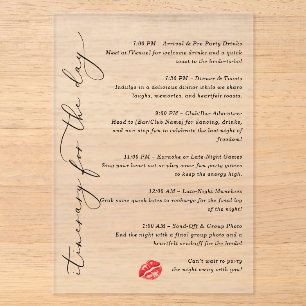 itinerary for the day
7:00 PM – Arrival & Pre Party Drinks
Meet at [Venue] for welcome drinks and a quick
toast to the bride-to-be!
7:30 PM – Dinner & Toasts
Indulge in a delicious dinner while we share
laughs, memories, and heartfelt toasts.
9:00 PM – Club/Bar Adventure
Head to [Bar/Club Name] for dancing, drinks,
and non stop fun to celebrate the last night of
freedom!
11:00 PM – Karaoke or Late-Night Games
Sing your heart out or play some fun party games
to keep the energy high.
12:00 AM – Late-Night Munchies
Grab some quick bites to recharge for the final leg
of the night!
1:00 AM – Send-Off & Group Photo
End the night with a final group photo and a
heartfelt sendoff for the bride!
Can't wait to party
the night away with you!